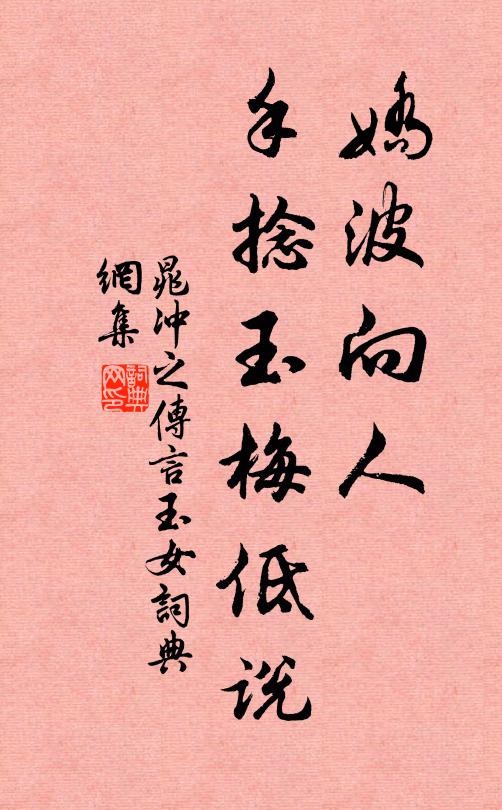 嬌波向人
手捻玉梅低說
晁沖之傳言玉女詞典
網集
詞典網印